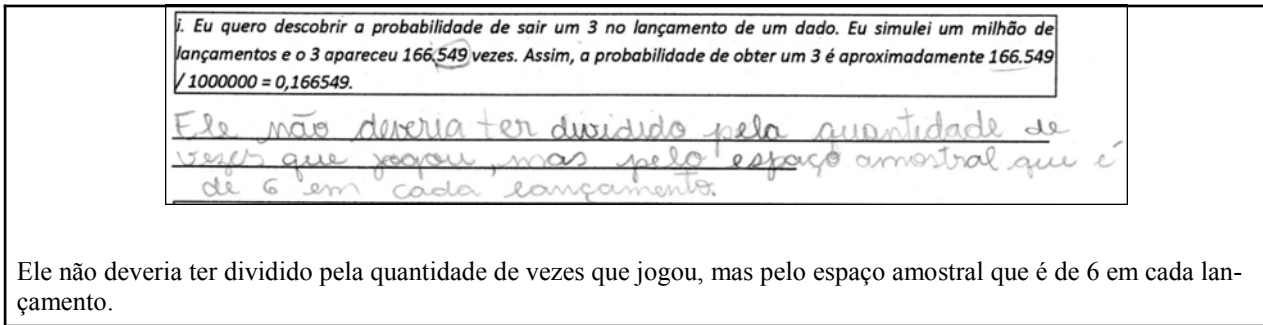 i. Eu quero descobrir a probabilidade de sair um 3 no lançamento de um dado. Eu simulei um milhão de
lançamentos e o 3 apareceu 166.549 vezes. Assim, a probabilidade de obter um 3 é aproximadamente 166.549
/ 1000000 = 0,166549.
Ele não deveria ter dividido pela quantidade de
vezes que jogou, mas pelo espaço amostral que é
de 6 em cada lançamento.
Ele não deveria ter dividido pela quantidade de vezes que jogou, mas pelo espaço amostral que é de 6 em cada lan-
çamento.